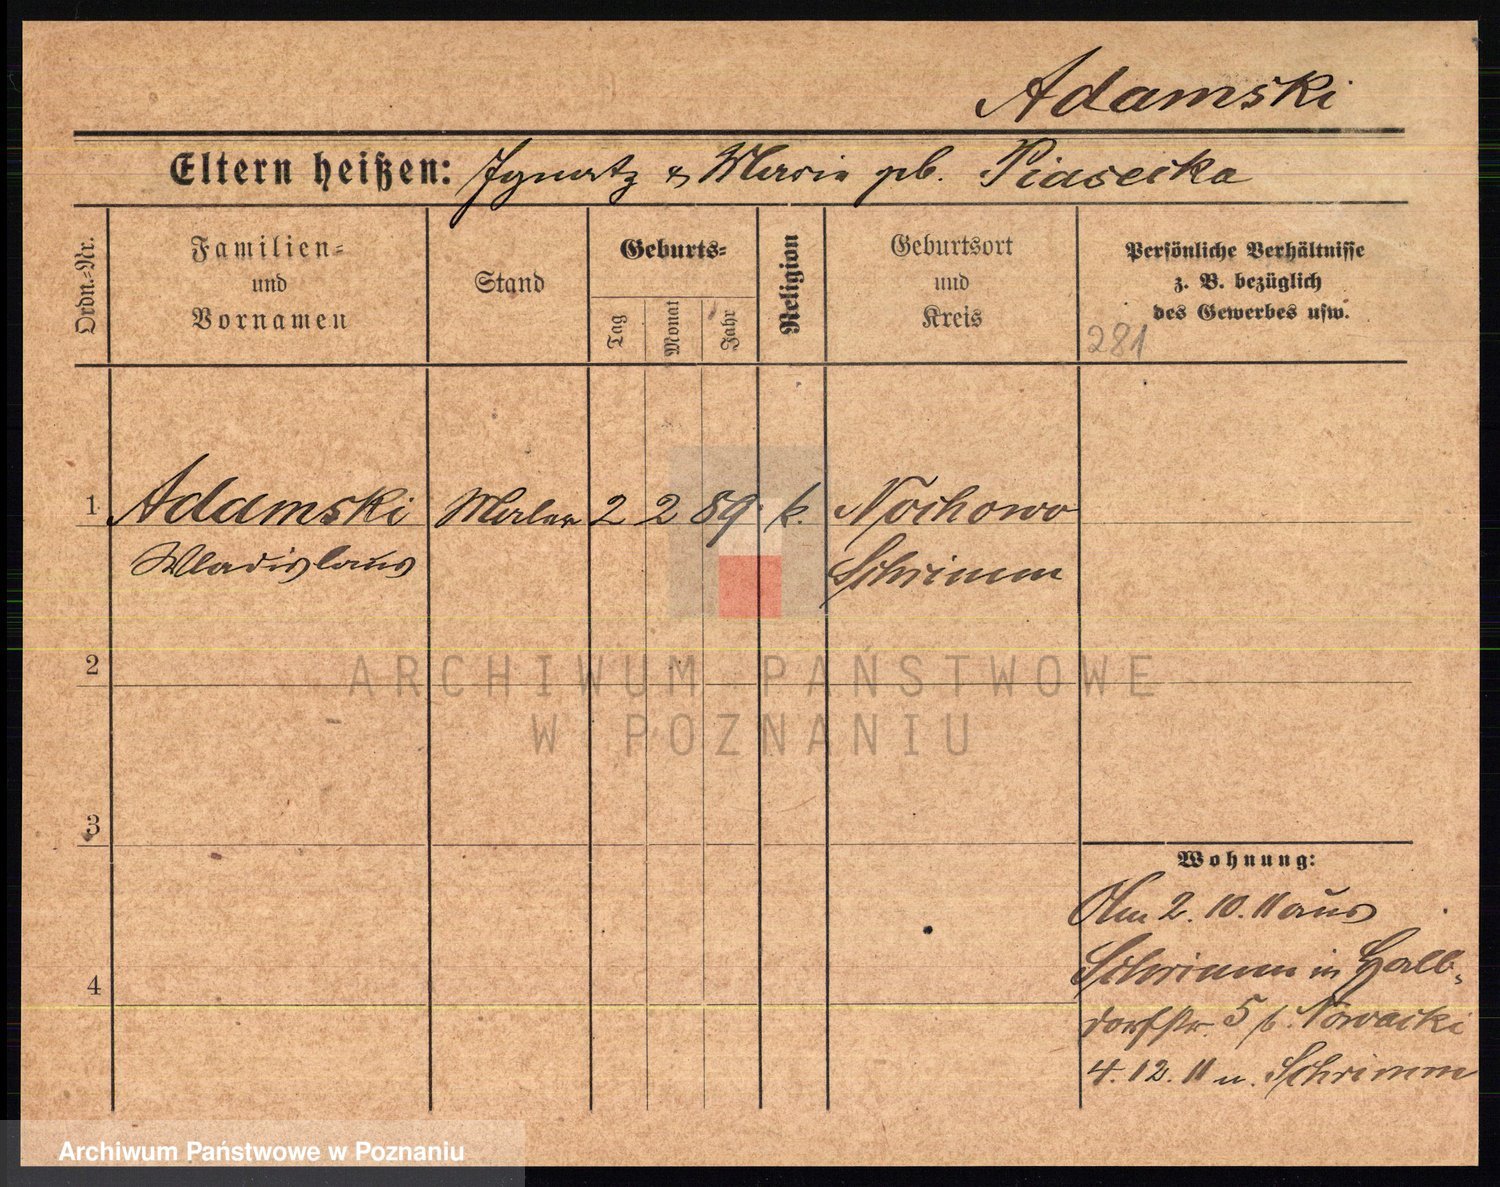 Adamski
Eltern heißen: Ignatz & Maria gb. Piasecka
Ordn.-Nr.
Familien-
und
Vornamen
Stand
Geburts-
Tag
Monat
Jahr
Religion
Geburtsort
und
Kreis
Persönliche Verhältnisse
z. B. bezüglich
des Gewerbes usw.
281
1 Adamski Maler 2 2 89 k. Nochowo
Wladislaus Schrimm
2
ARCHIWUM PAŃSTWOWE
W POZNANIU
3
Wohnung:
Am 2. 10. 11 aus
4 Schrimm in Halb-
dorfstr. 5 b. Nowacki
4. 12. 11 n. Schrimm
Archiwum Państwowe w Poznaniu